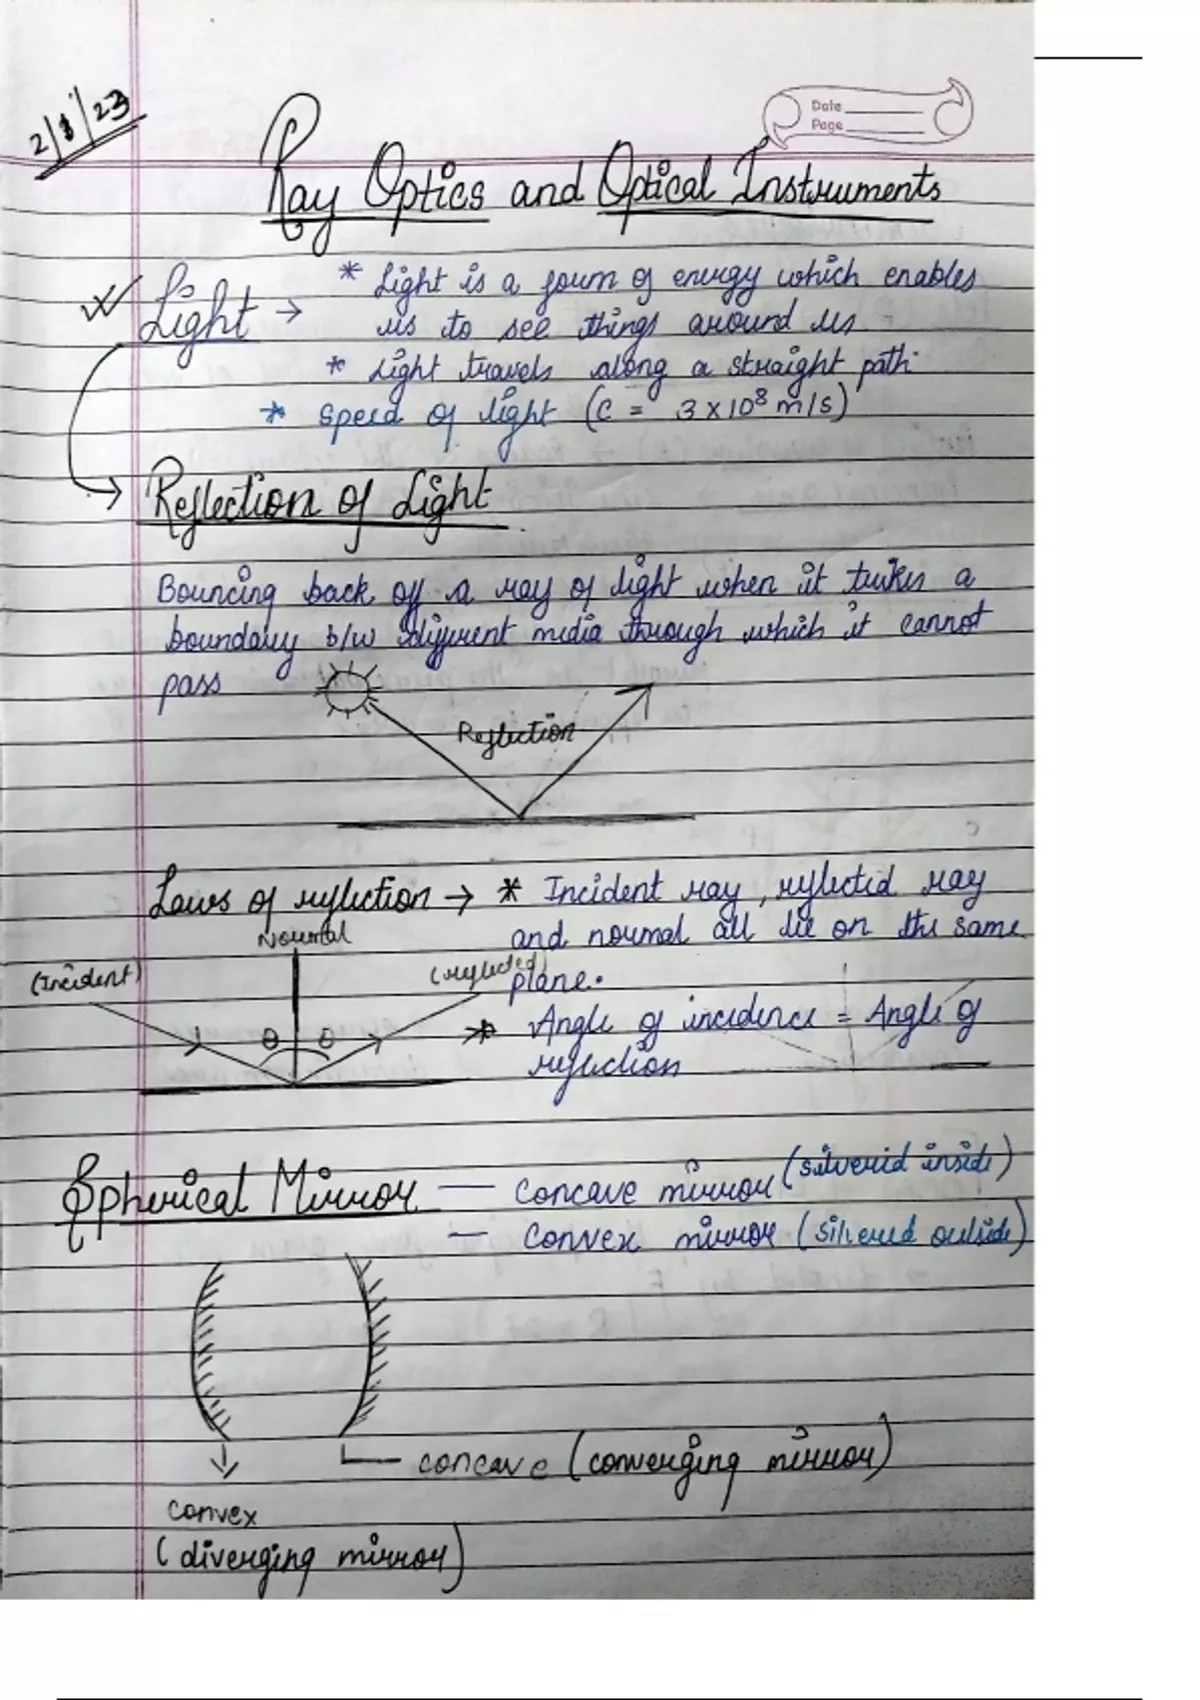 2/8/23
Date
Page
Ray Optics and Optical Instruments
Light → * Light is a form of energy which enables
us to see things around us
* Light travels along a straight path.
* speed of light (C = 3 x 10⁸ m/s)
Reflection of Light
Bouncing back off a ray of light when it
a
boundary b/w different media through which it cannot
pass
Reflection
Laws of reflection → * Incident ray, reflected ray
and normal all lie on the same
plane.
Normal
(Incident)
(reflected)
θ θ
* Angle of incidence = Angle of
reflection
Spherical Mirror — concave mirror (silvered inside)
— convex mirror (silvered outside)
concave (converging mirror)
convex
(diverging mirror)